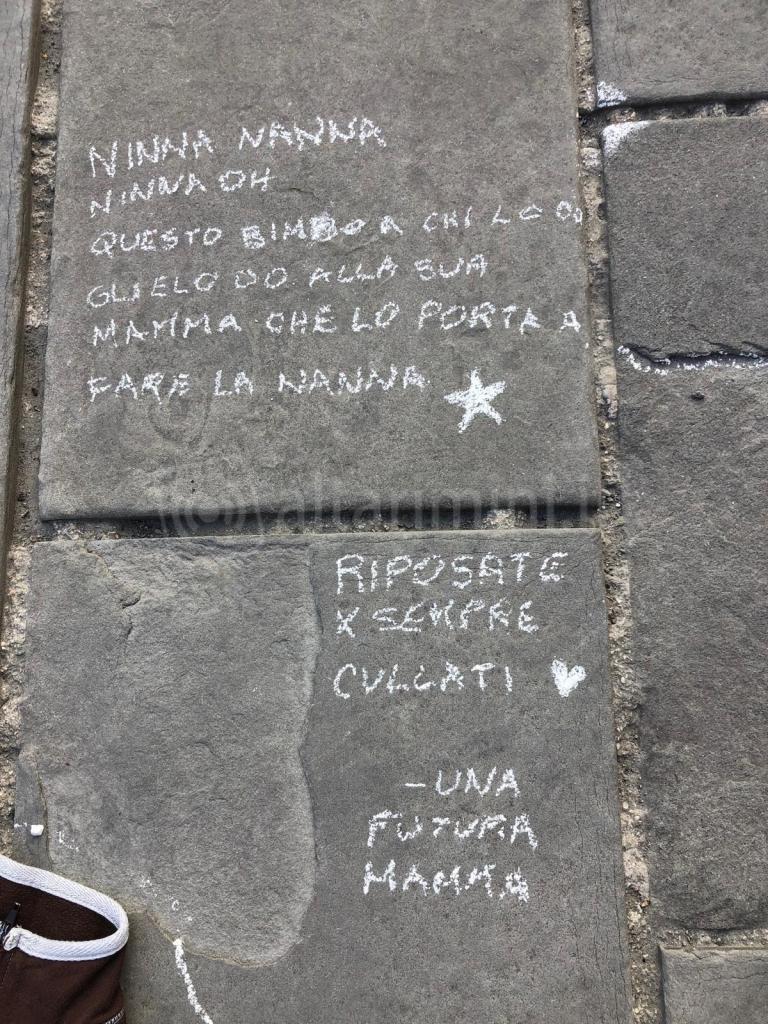 NINNA NANNA
NINNA OH
QUESTO BIMBO A CHI LO DO
GLIELO DO ALLA SUA
MAMMA CHE LO PORTA A
FARE LA NANNA
altarimini.it
RIPOSATE
X SEMPRE
CULLATI
-UNA
FUTURA
MAMMA